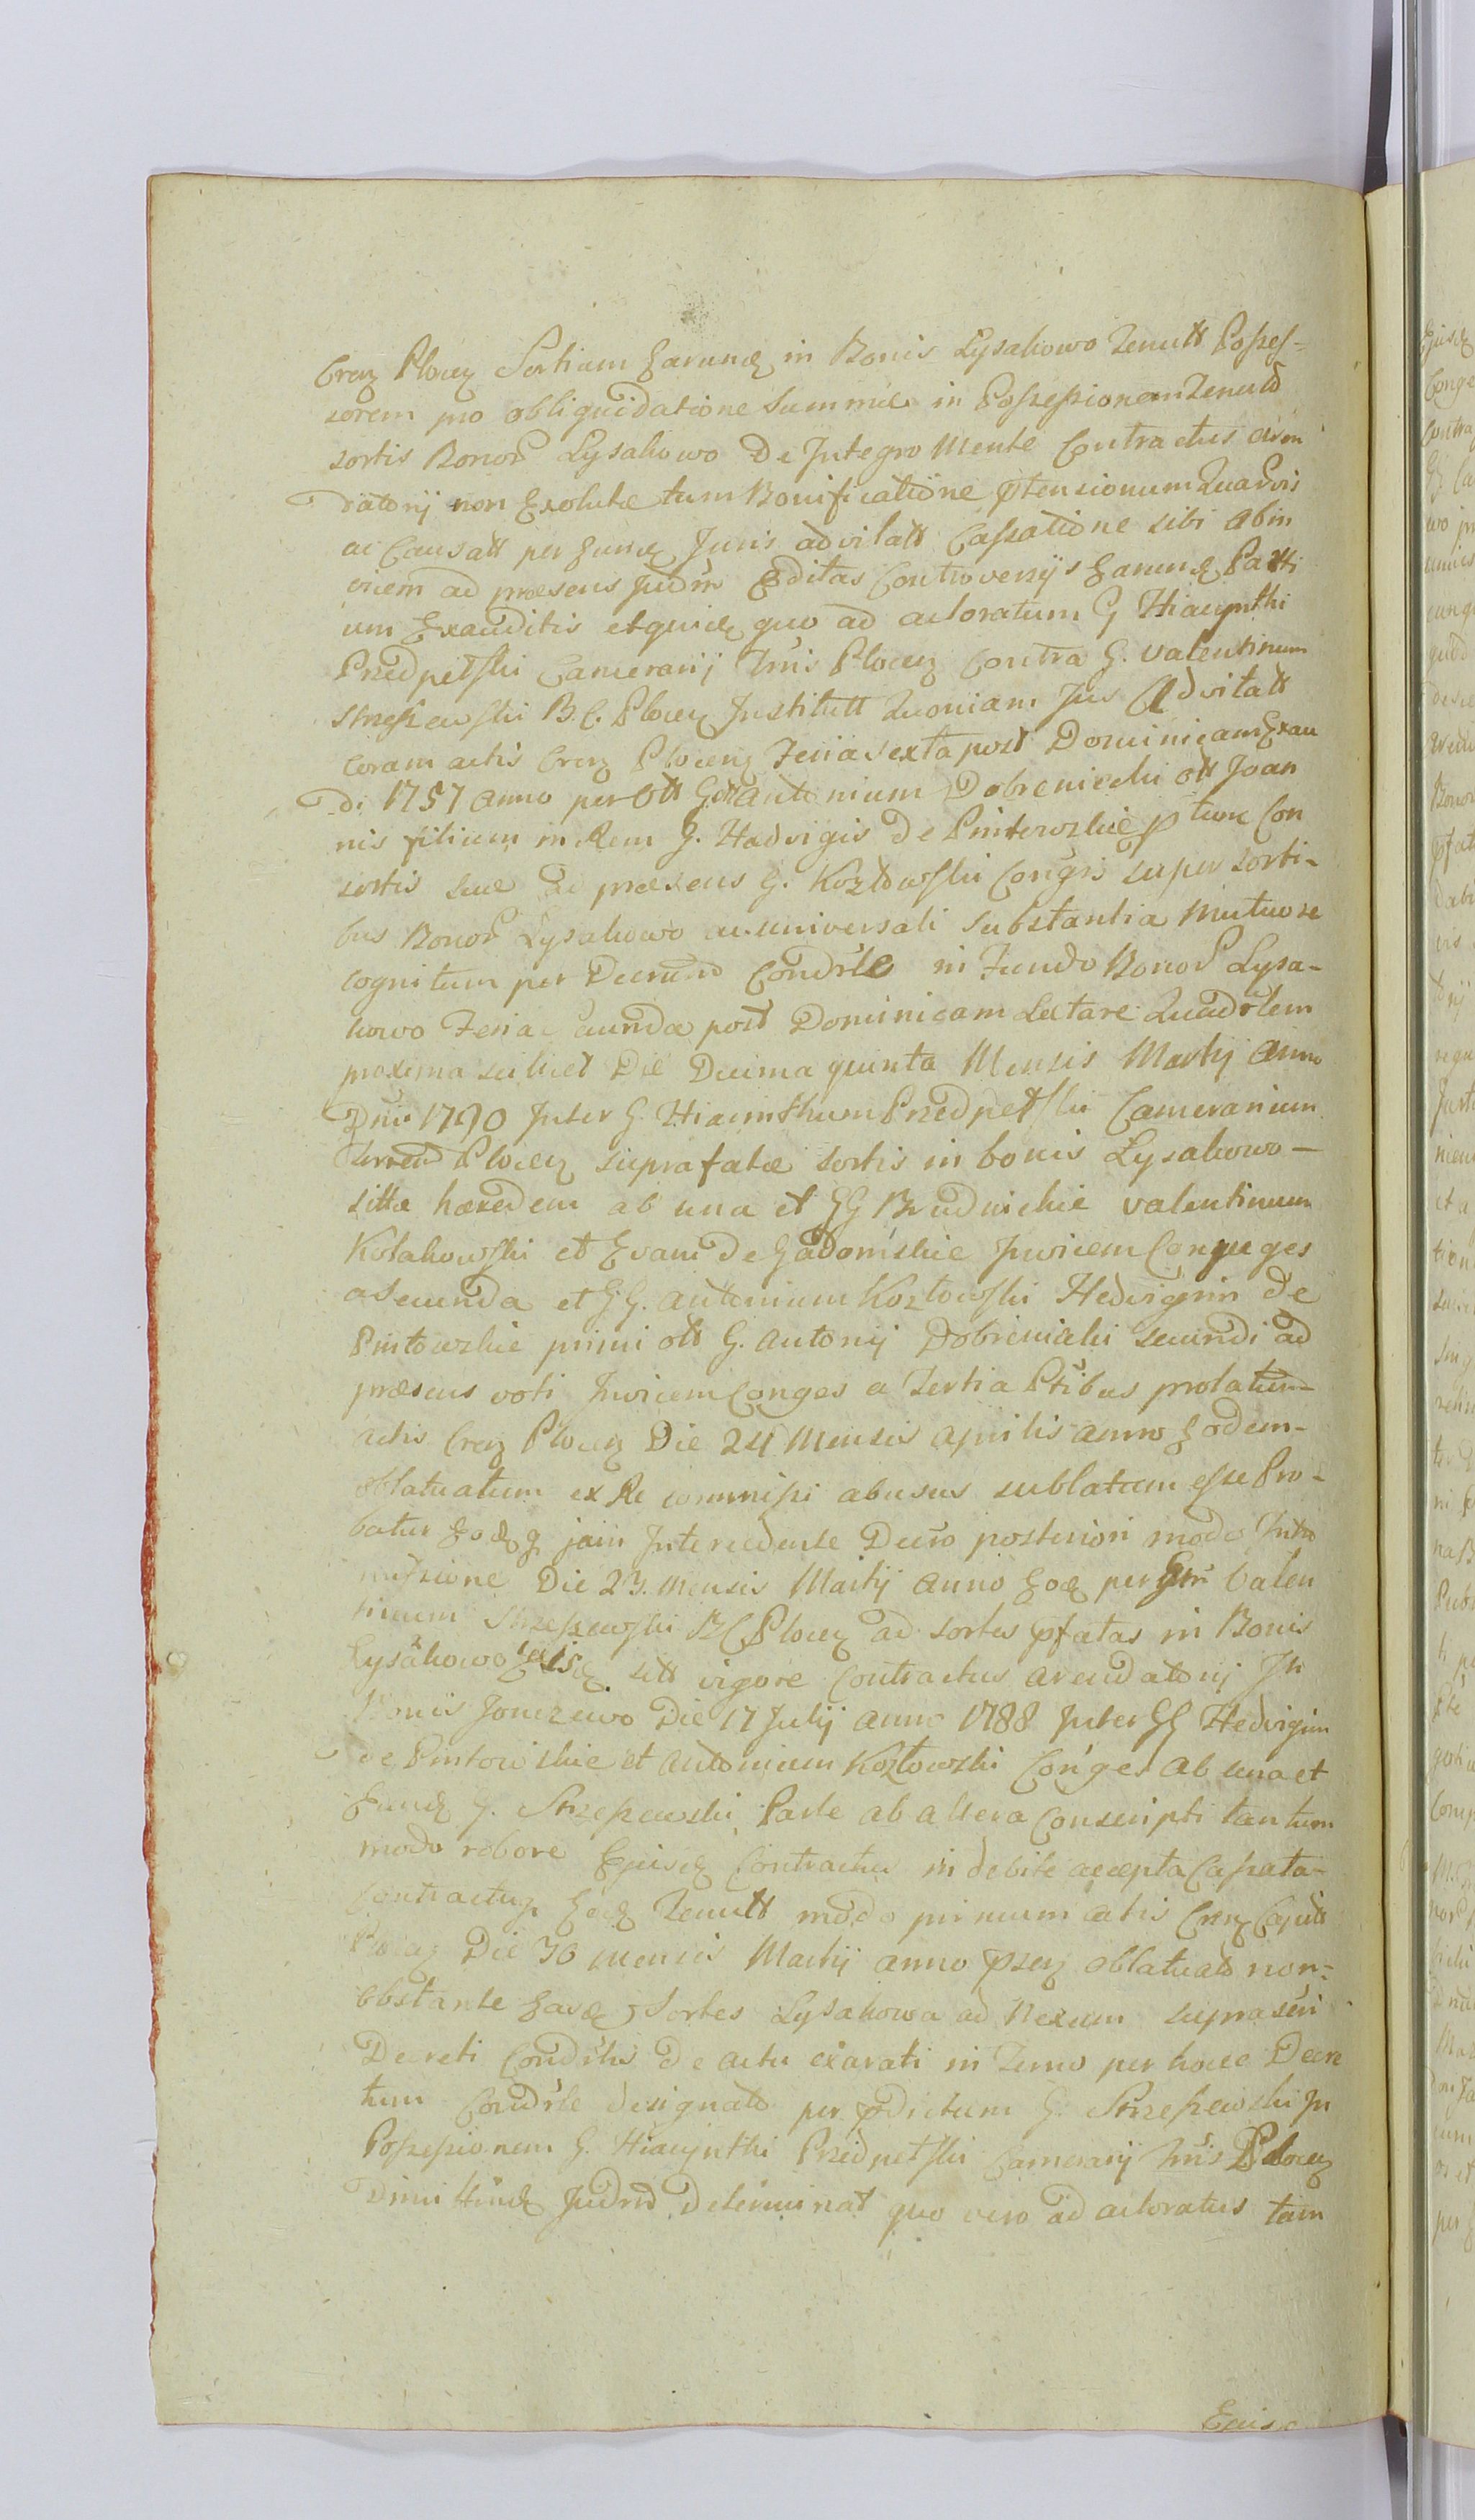 Crem Plocen Sortium Earund in Bonis Lysakowo Tenutt Posses=
sorem pro obliquidatione Summae in Possessionem Tenutō
sortis Bonor Lysakowo De Integro Mente Contractus aren
datorij non Exolutae tum Bonificatione ptensionum Quarvis
ac Causatt per Eund Juris advitatt Cassatione sibi abin
vicem ad praesens Judm Editas Controversijs Earund Parti
um Exauditis etquid quo ad actoratum G Hiacynthi
Przedpełski Camerarij Trris Plocen Contra G. Valentinum
Strzeszewski B. C. Plocen Institutt Quoniam Jus Advitatt
Coram actis Cren Plocen Feria sexta post Dominicam Exau
di 1757 anno per Ott Gm Antonium Dobreniecki ott Joan
nis filium in Rem G. Hadvigis De Pintowskie ptunc Con
sortis suae ad praesens G. Kozłowski Congis super sorti-
bus Bonor Lysakowo ac universali substantia Mutuo re
cognitum per Decrtum Condrle in Fundo Bonor Lysa-
kowo Feria Secunda post Dominicam Laetare Quadrlem
proxima scilicet Die Decima quinta Mensis Martij Anno
Dni 1790 Inter G. Hiacinthum Przedpełski Camerarium
Terren Plocen suprafatae sortis in bonis Lysakowo-
sittae haeredem ab una et GG Brudnickie Valentinum
Kołakowski et Evam De Gadomskie Invicem Conjuges
a Secunda et GG. Antonium Kozłowski Hedvigim De
Pintowskie primi ott G. Antonij Dobrenicki secundi ad
praesens voti Invicem Conges a Tertia Ptibus prolatum
actis Cren Plocen Die 24 Mensis Aprilis anno Eodem-
oblatuatum ex Re commissi abusus sublatum esse Pro-
batur Eod q jam Intercedente Decro posteriori modo Intro
missione Die 23. Mensis Martij Anno Eod per Gm Valen
tinum Strzeszewski B C Plocen ad sortes pfatas in Bonis
Lysakowo sitt vigore Contractus arendatorij In
Bonis Jonczewo Die 17 Julij anno 1788 Inter GG Hedvigim
de Pintowskie et Antonium Kozłowski Conges ab una et
Eund G. Strzeszewski Parte ab altera Conscripti tantum
modo robore Ejusd Contractus indebite accepta Cassata-
Contractuq Eod Tenutt modo primum actis Cren Capitt
Plocen Die 30 Mensis Martij anno psen oblatuato non=
obstante Easd Sortes Lysakowa ad Nexum suprascri
Decreti Condrlis De actu exarati in Termo per hocce Decre
tum Condrle designato per pdictum G. Strzeszewski In
Possessionem G. Hiacynthi Przedpełski Camerarij Trris Plocen
Dimittend Judm Determinat quo vero ad actoratus tam